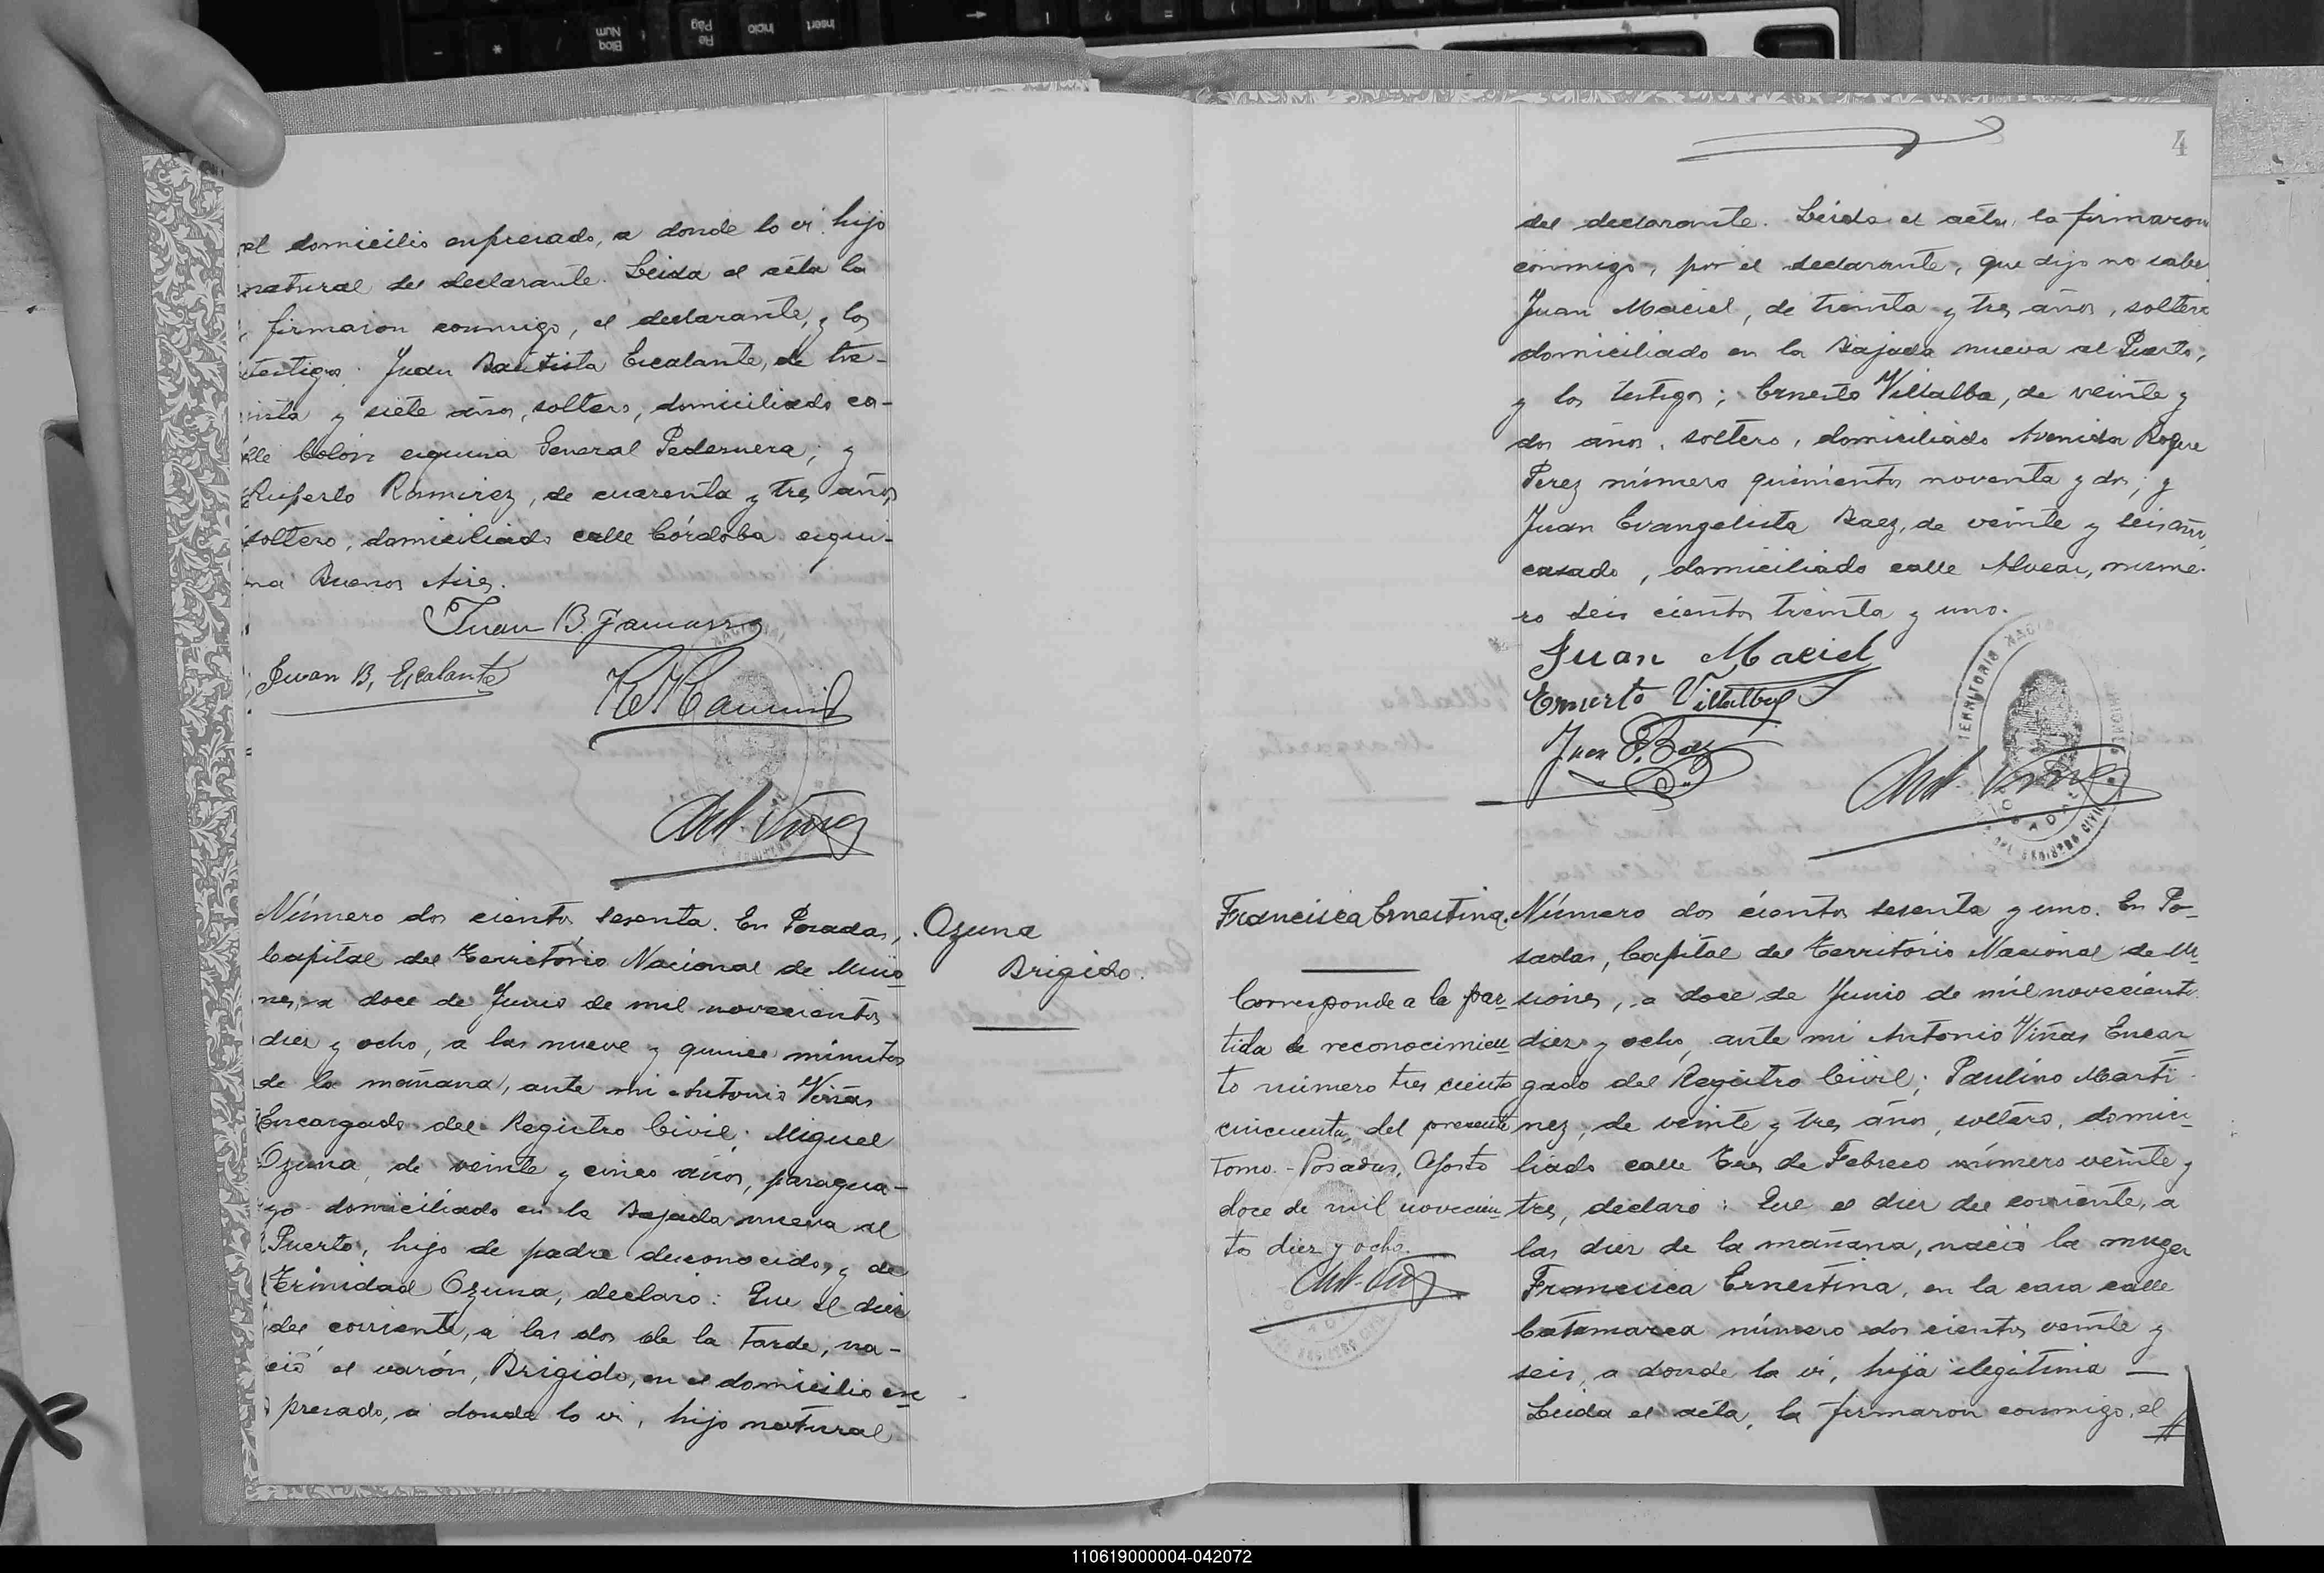 el domicilio expresado, a donde lo vi, hijo
natural del declarante. Leida el acta la
firmaron conmigo, el declarante, y los
testigos: Juan Bautista Escalante, de tre-
inta y siete años, soltero, domiciliado ca-
lle Colón esquina General Pedernera; y
Ruperto Ramirez, de cuarenta y tres años
soltero, domiciliado calle Córdoba esqui-
na Buenos Aires.
Juan B. Gamarra
Juan B. Escalante
Ant. Viñas
Número dos cientos sesenta. En Posadas,
Capital del Territorio Nacional de Misio
nes, a doce de Junio de mil novecientos
diez y ocho, a las nueve y quince minutos
de la mañana, ante mi Antonio Viñas
Encargado del Registro Civil: Miguel
Ozuna, de veinte y cinco años, paragua-
yo domiciliado en la Bajada nueva al
Puerto, hijo de padre desconocido, y de
Trinidad Ozuna, declaro: Que el diez
del corriente, a las dos de la tarde, na-
ció el varón, Brigido, en el domicilio ex
presado, a donde lo vi, hijo natural
Ozuna
Brigido.
4
del declarante. Leida el acta, la firmaron
conmigo, por el declarante, que dijo no saber
Juan Maciel, de treinta y tres años, soltero
domiciliado en la Bajada nueva al Puerto,
y los testigos; Ernesto Villalba, de veinte y
dos años, soltero, domiciliado Avenida Roque
Perez número quinientos noventa y dos; y
Juan Evangelista Baez, de veinte y seis años
casado, domiciliado calle Alvear, núme-
ro seis cientos treinta y uno.
Juan Maciel
Ernesto Villalba
Juan E. Baez
Ant. Viñas
TERRITORIO NACIONAL
REGISTRO CIVIL
Francisca Ernestina.
Corresponde a la par
tida de reconocimien
to número tres ciento
cincuenta, del presente
tomo. - Posadas, Agosto
doce de mil novecien
tos diez y ocho.
Ant. Viñas
Número dos cientos sesenta y uno. En Po-
sadas, Capital del Territorio Nacional de Mi
siones, a doce de Junio de mil novecientos
diez y ocho, ante mi Antonio Viñas Encar
gado del Registro Civil; Paulino Marti
nez, de veinte y tres años, soltero, domici-
liado calle Tres de Febrero número veinte y
tres, declaro: Que el diez del corriente, a
las diez de la mañana, nació la muger
Francisca Ernestina, en la casa calle
Catamarca número dos cientos veinte y
seis, a donde la vi, hija ilegitima —
Leida el acta, la firmaron conmigo, el
110619000004-042072